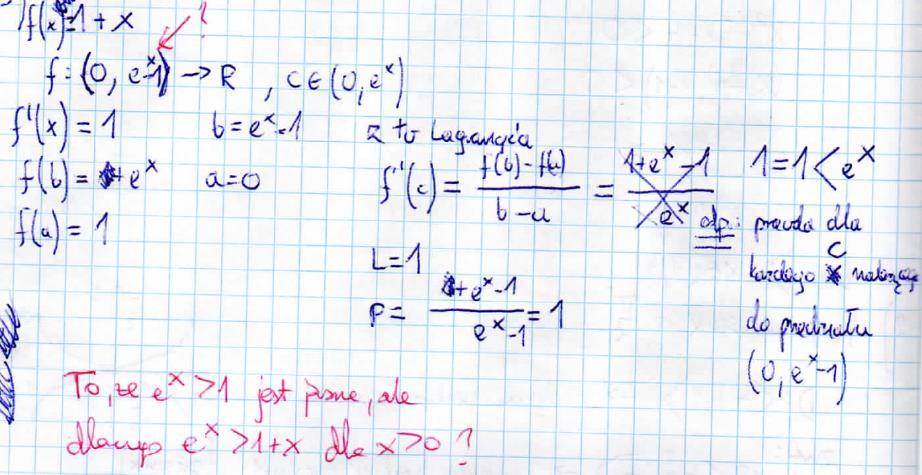 f(x)=1+x
?
f: (0, e^x-1) → R , c∈(0, e^x)
f'(x) = 1 b = e^x-1 z tw Lagrange'a
f(b) = e^x a=0 f'(c) = \frac{f(b)-f(a)}{b-a} = \frac{1+e^x-1}{e^x} 1=1<e^x
f(a) = 1 odp: prawda dla
L=1 każdego c należącego
P= \frac{e^x-1}{e^x-1} = 1 do przedziału
(0, e^x-1)
To, że e^x >1 jest jasne, ale
dlaczego e^x >1+x dla x>0 ?